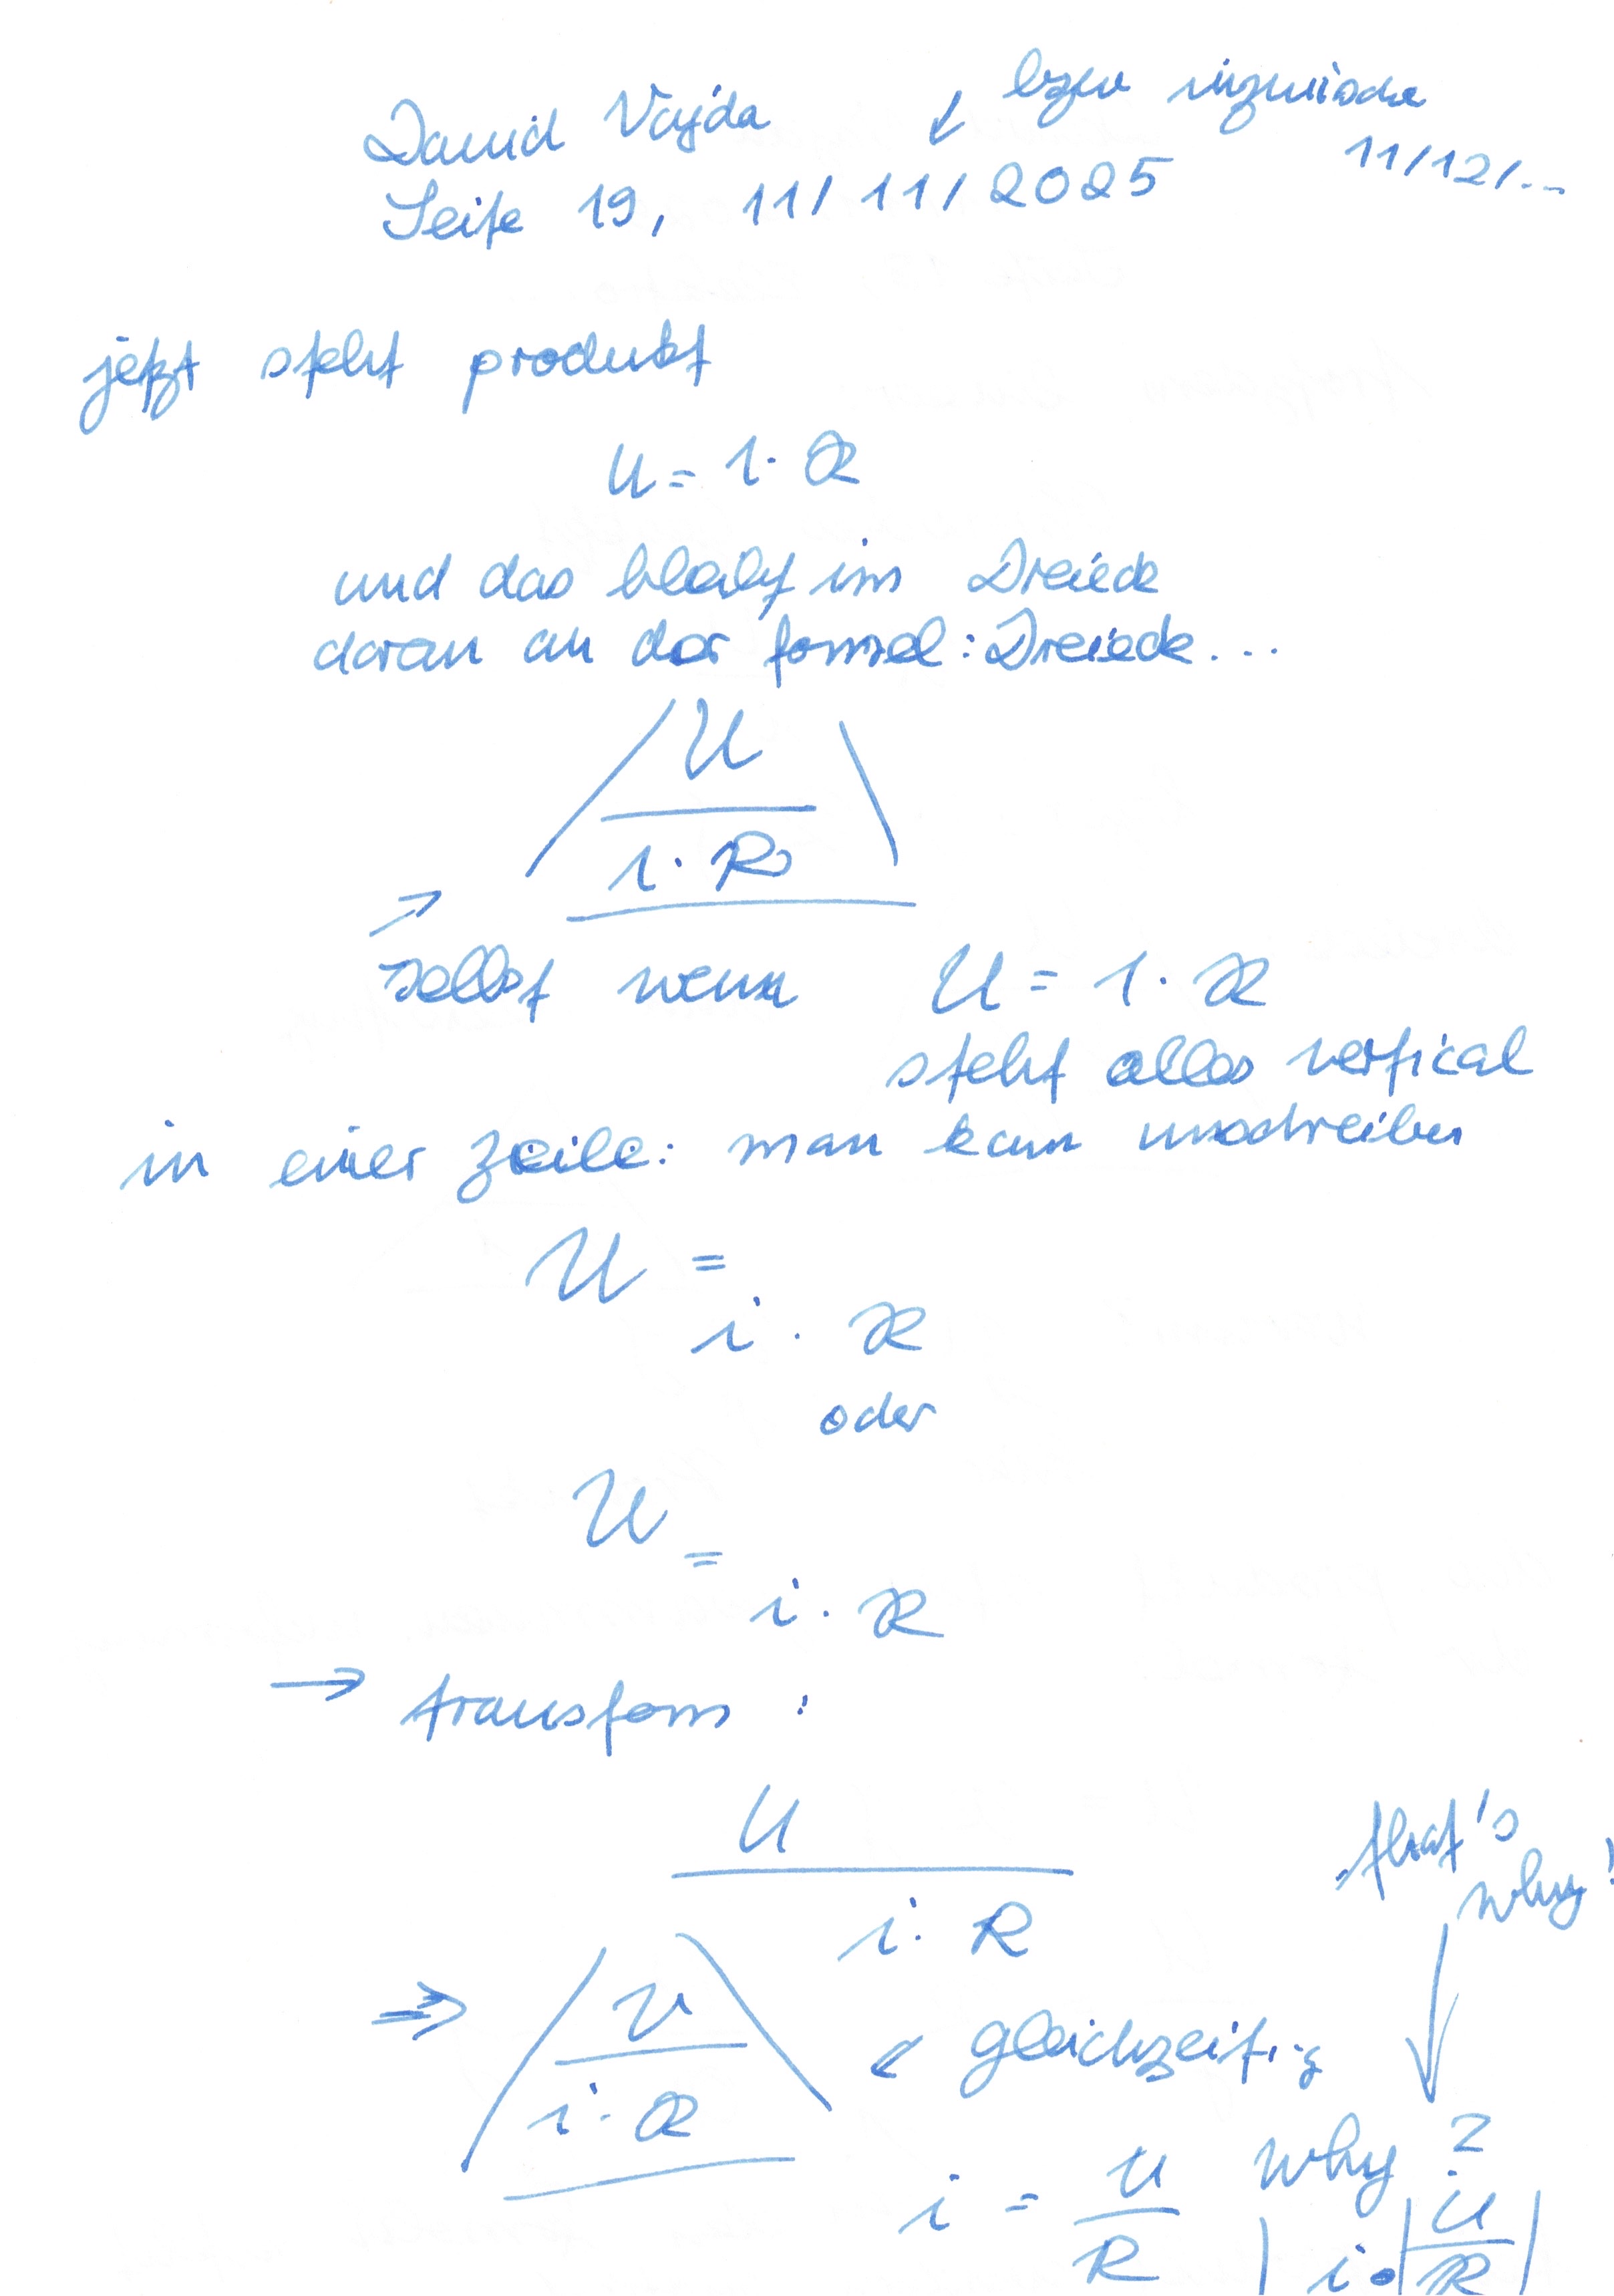 David Vajda
bzw inzwische
11/12/...
Seite 19, 11/11/2025
jetzt steht produkt
U = i · R
und das bleibt im Dreieck
daran an der formel: Dreieck...
U
i · R
selbst wenn U = i · R
steht alles vertical
in einer zeile: man kann umschreiben
U =
i · R
oder
U
=
i · R
→ transform :
U
i · R
that's
why!
⇒ U
i · R
gleichzeitig
i = U/R why?
i · U/R